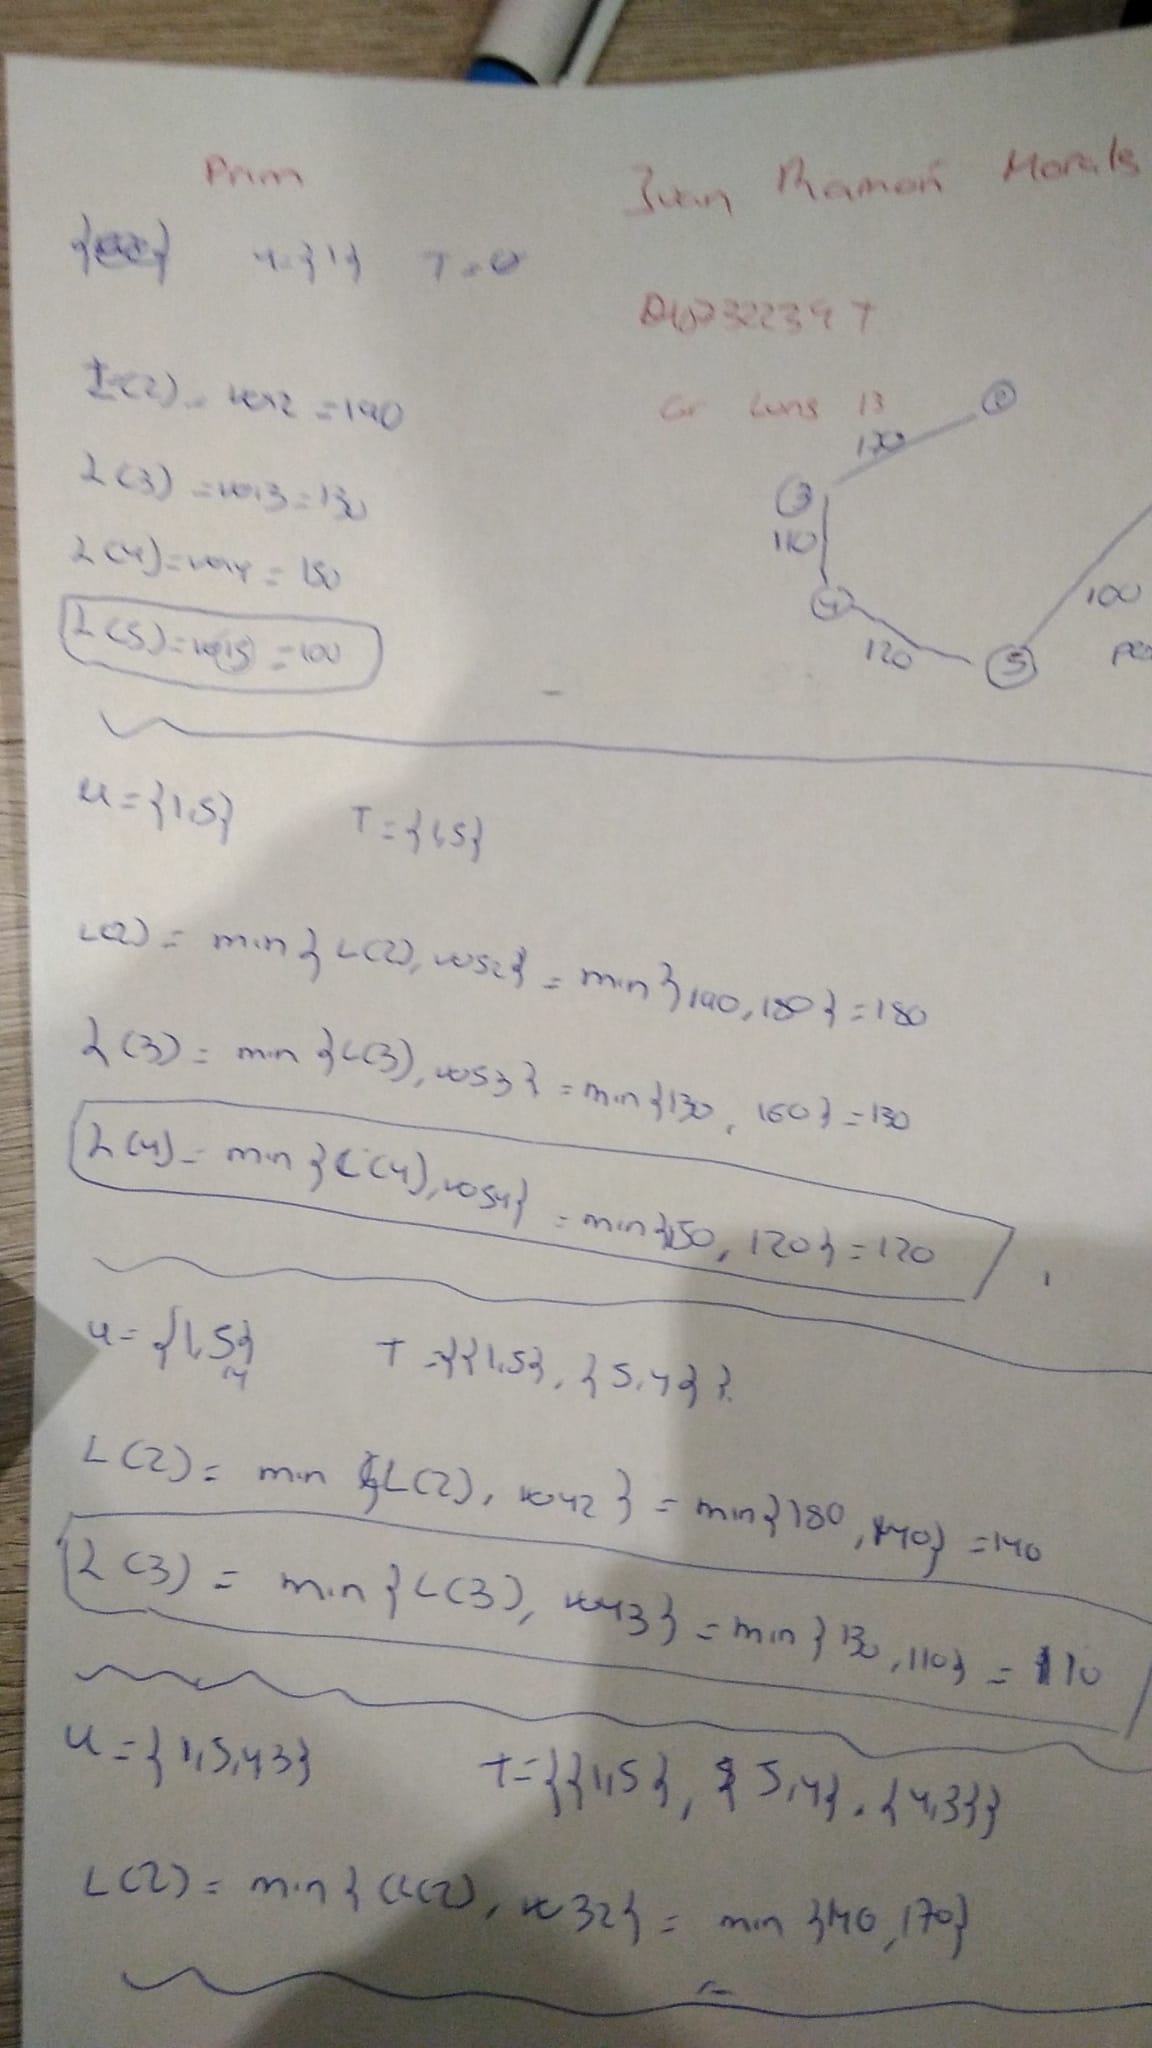 Prim
Juan Ramón Morals
u={1} T=0
L(2)=w12=190
Gr Luns 13
L(3)=w13=130
L(4)=w14=150
L(5)=w15=100
2
170
3
110
4
120
5
100
u={1,5} T={1,5}
L(2)= min{L(2), w52}=min{190,180}=180
L(3)= min{L(3), w53}=min{130, 160}=130
L(4)= min{L(4), w54}=min{150, 120}=120
u={1,5,4} T={{1,5}, {5,4}}
L(2)= min{L(2), w42}=min{180,140}=140
L(3)= min{L(3), w43}=min{130,110}=110
u={1,5,43} T={{1,5}, {5,4}, {4,3}}
L(2)= min{L(2), w32}= min{140,170}